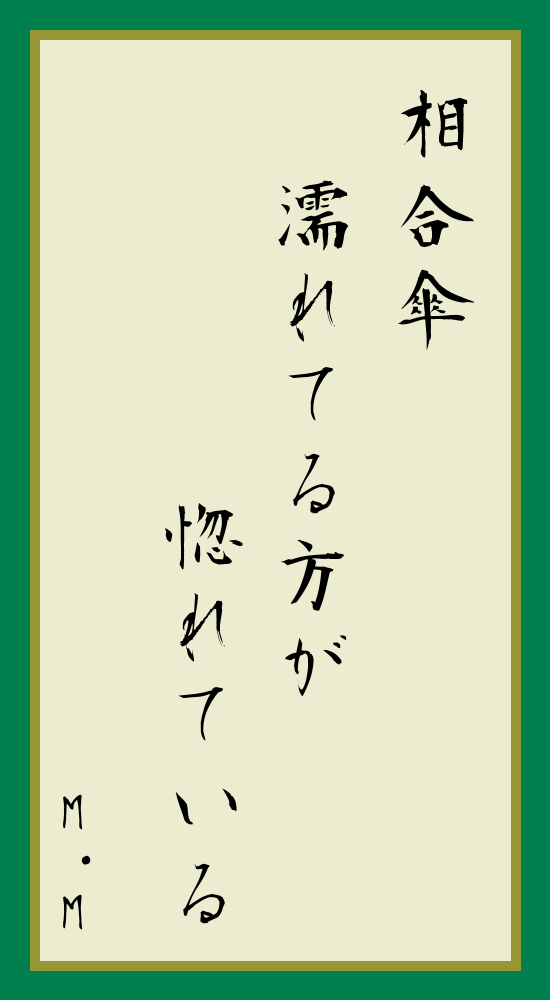 相合傘
濡れてる方が
惚れている
M・M